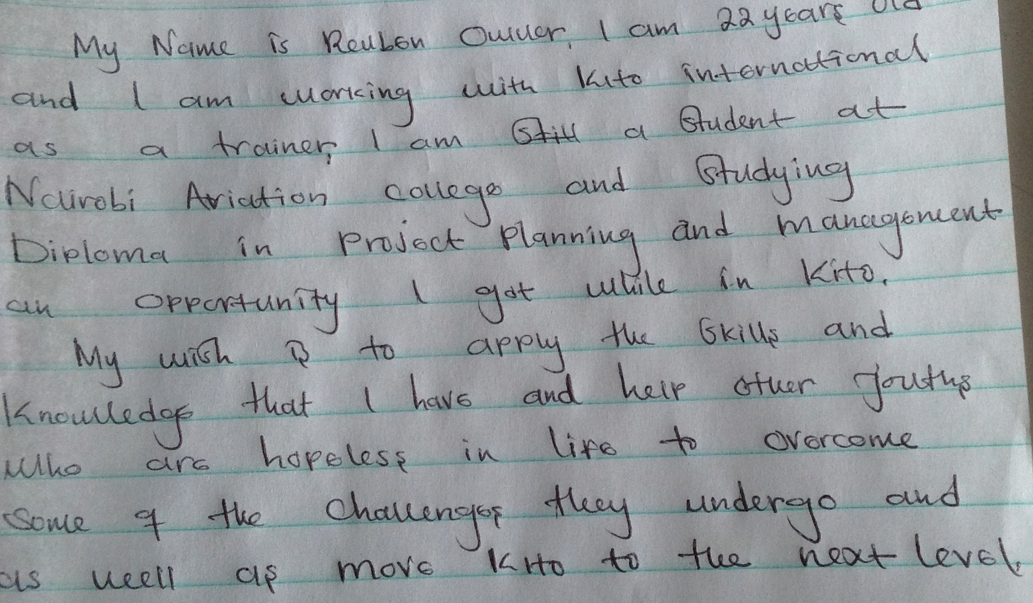 My Name is Reuben Owuor, I am 22 years old
and I am working with Kito international
as a trainer, I am Still a Student at
Nairobi Aviation college and Studying
Diploma in Project Planning and management
an opportunity I got while in Kito.
My wish is to apply the Skills and
Knowledge that I have and help other youths
who are hopeless in life to overcome
some of the Challenges they undergo and
as well as move Kito to the next level.